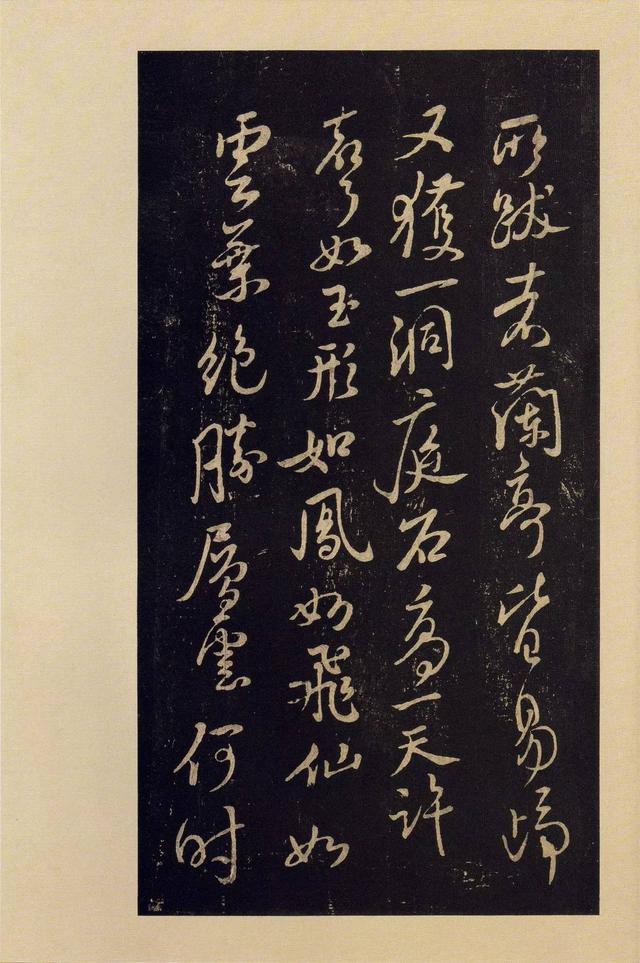 所跋者蘭亭皆易歸
又獲一洞庭石高一天許
聲如玉形如鳳如飛仙如
雲葉絶勝層何時